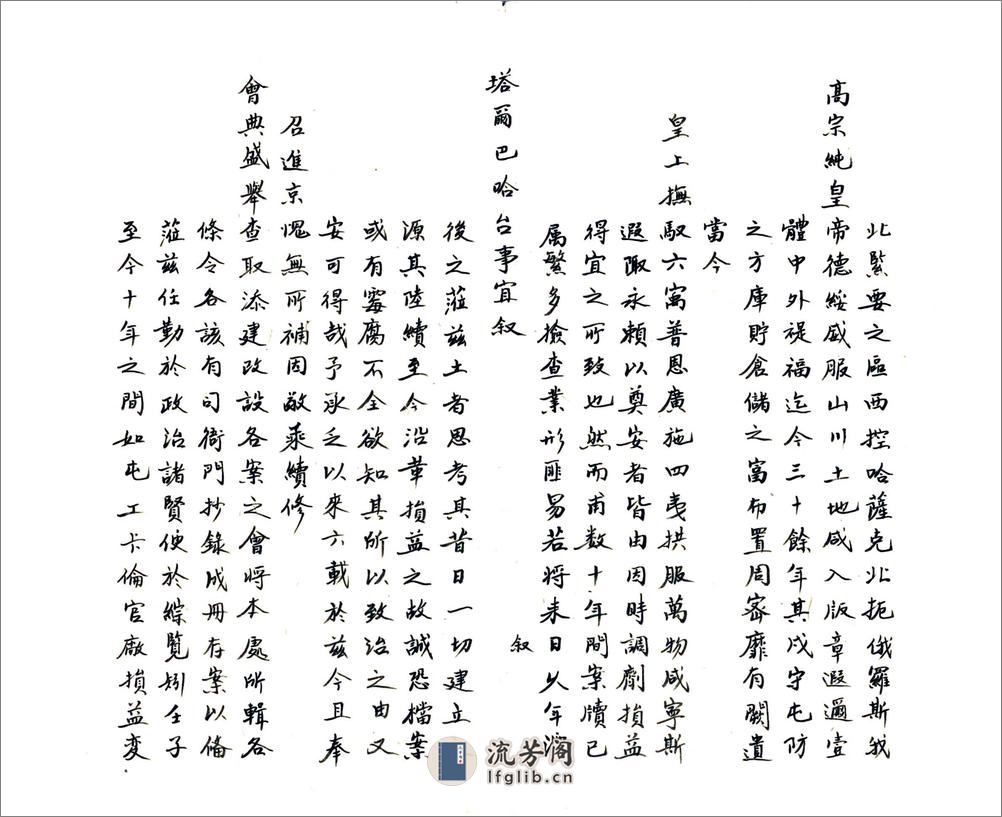 北緊要之區西控哈薩克北扼俄羅斯我
高宗純皇帝德綏威服山川土地咸入版章遐邇壹
體中外禔福迄今三十餘年其戍守屯防
之方庫貯倉儲之富布置周密靡有闕遺
當今
皇上撫馭六寓普恩廣施四夷拱服萬物咸寧斯
遐陬永賴以奠安者皆由因時調劑損益
得宜之所致也然而甫數十年間案牘已
属繁多撿查業形匪易若將来日久年深
叙
塔爾巴哈台事宜叙
後之蒞兹土者思考其昔日一切建立
源其陸續至今沿革損益之故誠恐檔案
或有霉腐不全欲知其所以致治之由又
安可得哉予承乏以來六載於兹今且奉
召進京愧無所補因敢乘續修
會典盛舉查取添建改設各案之會將本處所輯各
條令各該有司衙門抄錄成冊存案以俻
蒞兹任勤於政治諸賢便於綜覧矧壬子
至今十年之間如屯工卡倫官廠損益变
流芳阁
lfglib.cn